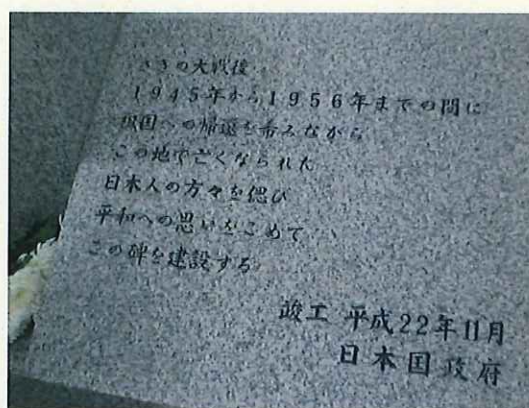 さきの大戦後
1945年から1956年までの間に
祖国への帰還を希みながら
この地で亡くなられた
日本人の方々を偲び
平和への思いをこめて
この碑を建設する
竣工 平成22年11月
日本国政府